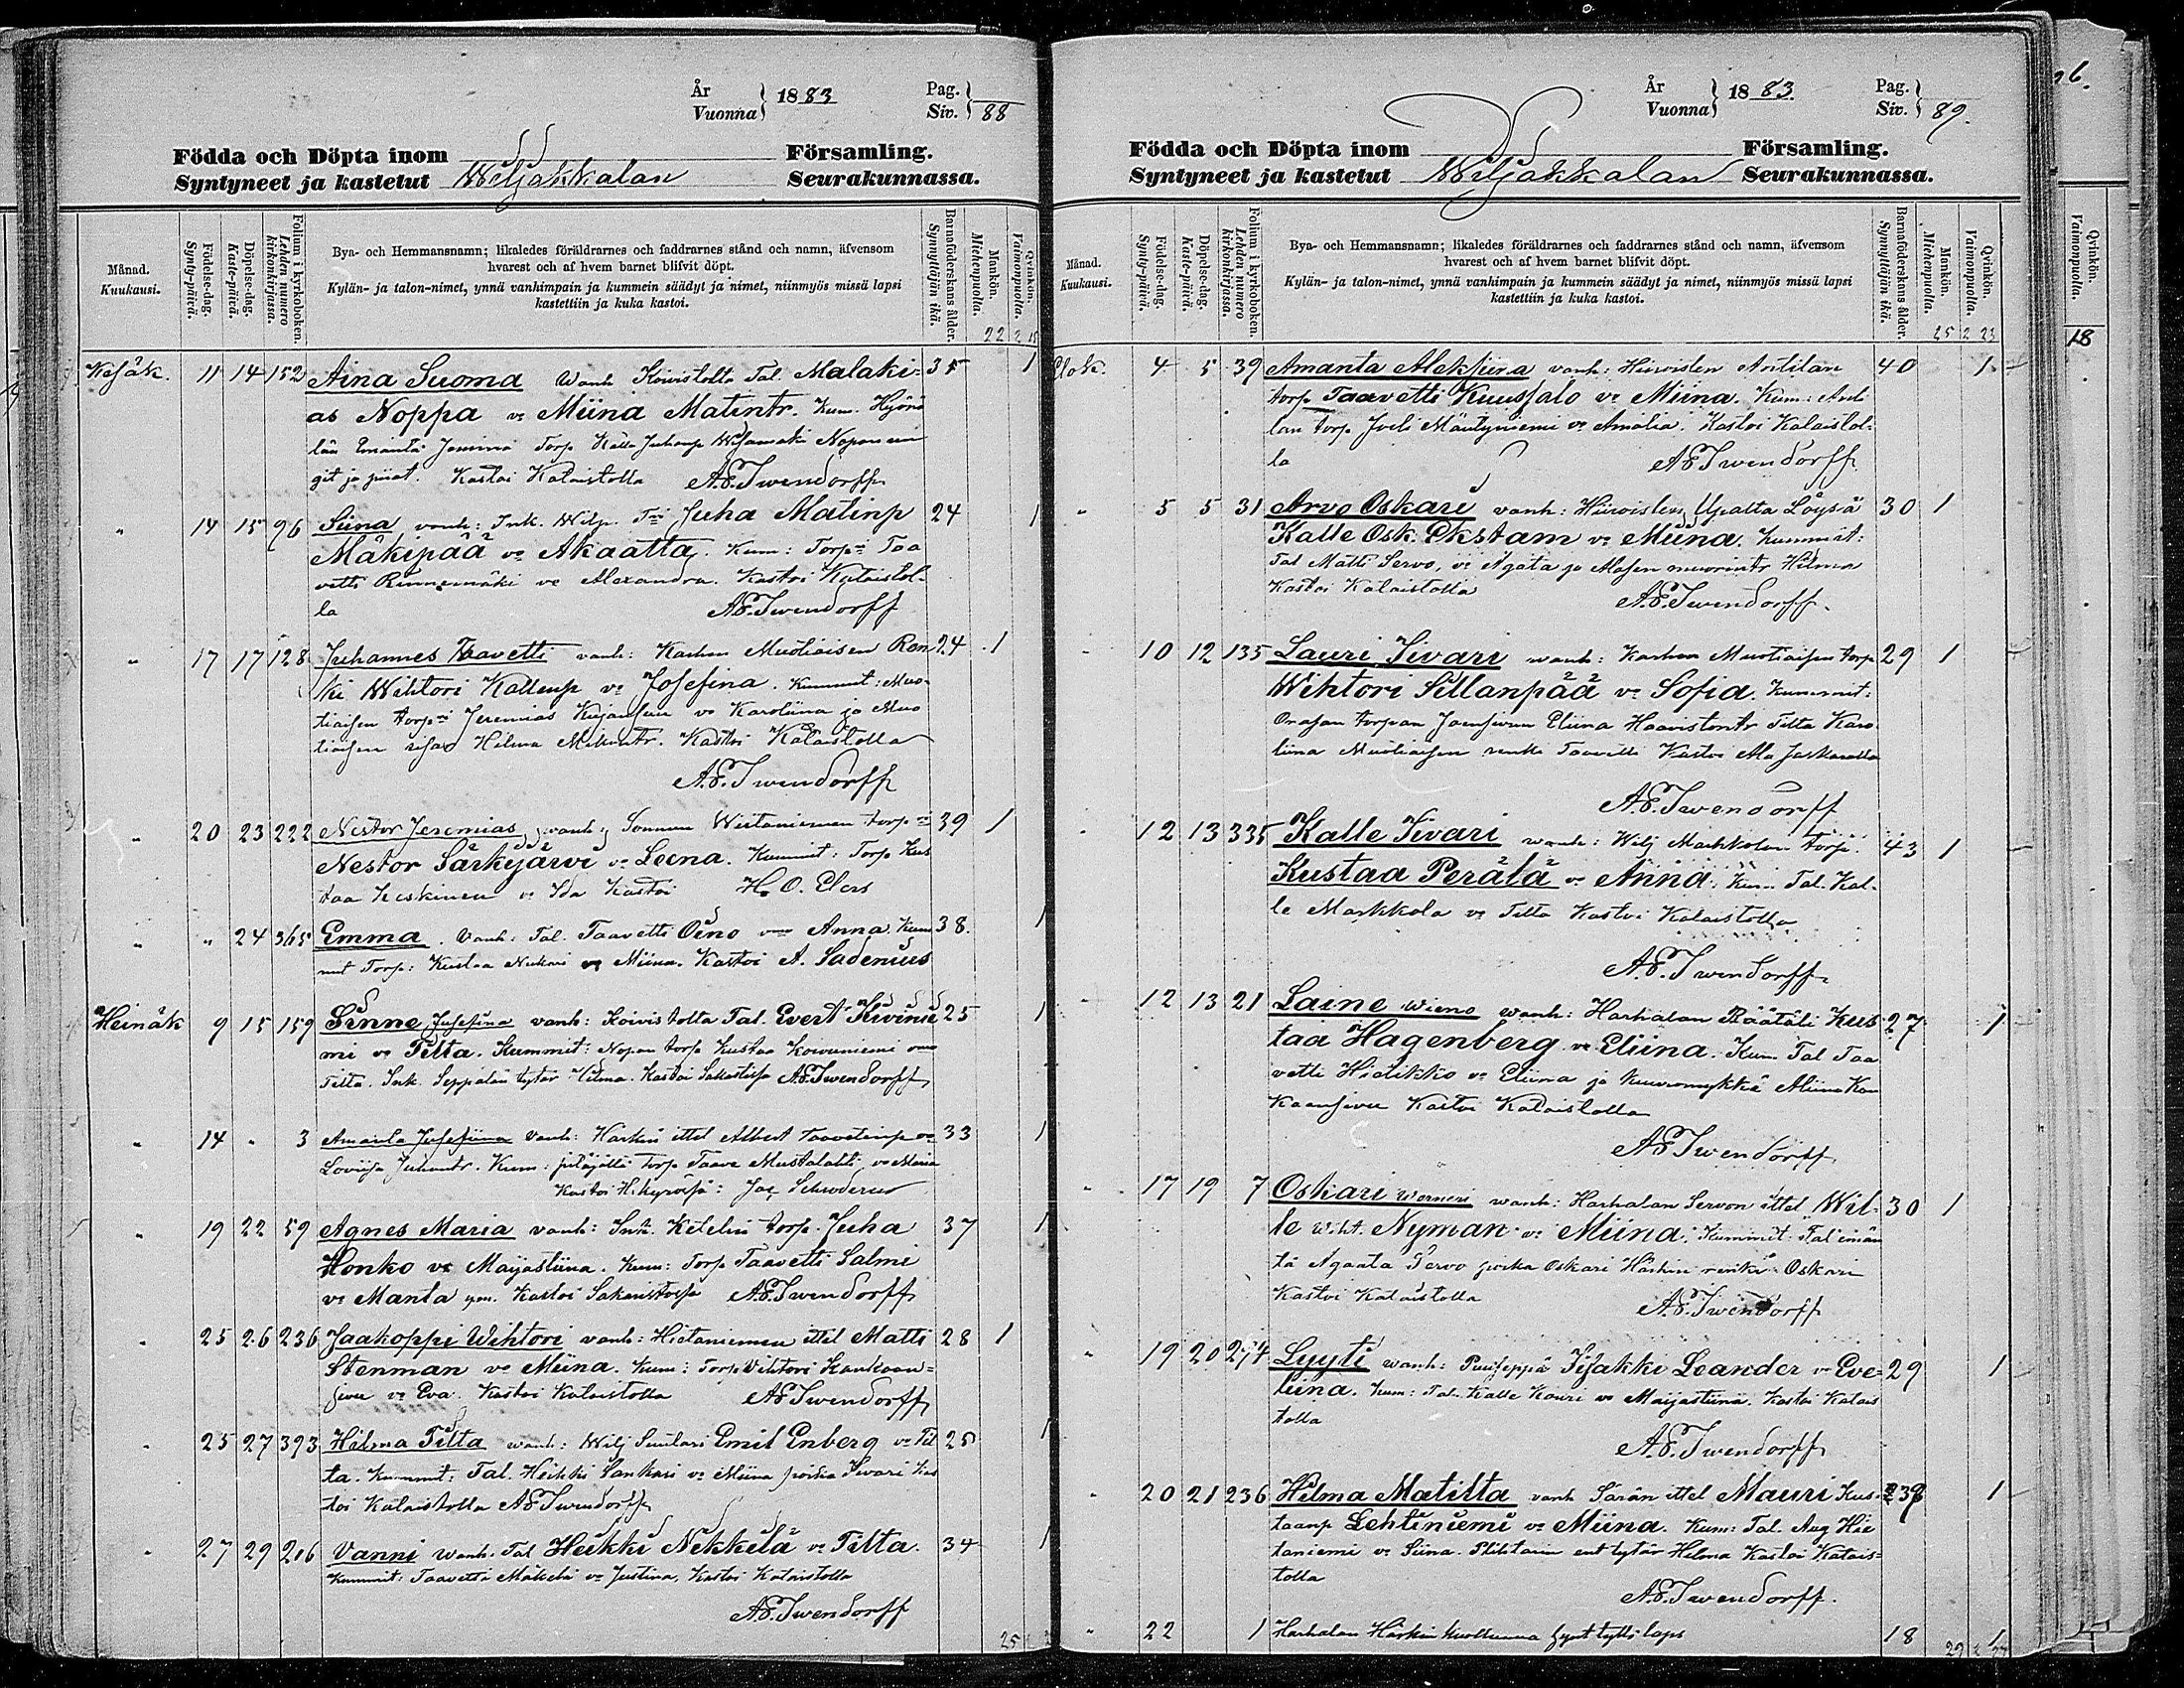 År
Vuonna } 1883
Pag.
Siv. } 88
Födda och Döpta inom Församling.
Syntyneet ja kastetut Wiljakkalan Seurakunnassa.
Månad.
Kuukausi.
Födelse-dag.
Synty-päivä.
Döpelse-dag.
Kaste-päivä.
Folium i kyrkoboken.
Lehden numero kirkonkirjassa.
Bya- och Hemmansnamn; likaledes föräldrarnes och faddrarnes stånd och namn, äfvensom
hvarest och af hvem barnet blifvit döpt.
Kylän- ja talon-nimet, ynnä vanhimpain ja kummein säädyt ja nimet, niinmyös missä lapsi
kastettiin ja kuka kastoi.
Barnaföderskans ålder.
Synnyttäjän ikä.
Mankön.
Miehenpuolta.
Qvinkön.
Vaimonpuolta.
22 2 15
Kesäk. 11 14 152 Aina Suoma Wanh Koivistolta Tal. Malaki- 35 1
as Noppa vo Miina Matintr. Kum.
Torp. Kalle Juhanp
git ja piiat. Kastoi Kalaistolla A.E. Iwendorff
" 14 15 96 Siina vanh: Ink. Wilp. Juha Matinp 24 1
Mäkipää vo Akaatta. Kum: Torp. Taa
vetti Rinnemäki vo Alexandra. Kastoi Kalaistol-
la A.E. Iwendorff
" 17 17 128 Juhannes Taavetti vanh: Karhen Muotiaisen Ren 24 1
ki Wihtori Kallenp vo Josefina. Kummit: Muo-
tiaisen torp. Jeremias vo Karoliina ja Muo
tiaisen Hilma Kastoi Kalaistolla
A.E. Iwendorff
" 20 23 222 Nestor Jeremias, vanh: Sonnun Wirtaniemen torp. 39 1
Nestor Särkijärvi vo Leena. Kummit: Torp Kus
taa Keskinen vo Ida Kastoi H. O. Elers
" " 24 365 Emma. Vanh: Tal. Taavetti Oino vmo Anna. Kum 38. 1
mit Torp: Kustaa vo Miina. Kastoi A. Sadenius
Heinäk 9 15 159 Sinne Josefina vanh: Koivistolta Tal. Evert Kivinie 25 1
mi vo Tilta. Kummit: Nopan torp Kustaa Koivuniemi vmo
Tilta. Ink. Seppälän tytär Hilma. Kastoi A.E. Iwendorff
" 14 " 3 Amanta Josefiina Vanh: Harkin ittel Albert Taavetinp vo 33 1
Loviisa Juhontr. Kum: Torp Taave Mustalahti vo Maria
Kastoi H:kyrössä: Jac Schroderus
" 19 22 59 Agnes Maria vanh: Ink. Ketelin torp. Juha 37 1
Honko vo Maijastiina. Kum: Torp Taavetti Salmi
vo Manta ym. Kastoi A.E. Iwendorff
" 25 26 236 Jaakoppi Wihtori vanh: Hietaniemen ittel Matti 28 1
Stenman vo Miina. Kum: Torp. Wihtori Kankaan-
vo Eva. Kastoi Kalaistolla A.E. Iwendorff
" 25 27 393 Hilma Tilta wanh: Wilj Suutari Emil Enberg vo Til 25 1
ta. Kummit: Tal. Heikki Sankari vo Miina poika Iivari Kas
toi Kalaistolla A.E. Iwendorff
" 27 29 206 Vanni Wanh. Tal Heikki Nikkilä vo Tilta. 34 1
Kummit: Taavetti Mäkelä vo Justina, Kastoi Kalaistolla
A.E. Iwendorff
25
År
Vuonna } 1883
Pag.
Siv. } 89.
Födda och Döpta inom Församling.
Syntyneet ja kastetut Wiljakkalan Seurakunnassa.
Månad.
Kuukausi.
Födelse-dag.
Synty-päivä.
Döpelse-dag.
Kaste-päivä.
Folium i kyrkoboken.
Lehden numero kirkonkirjassa.
Bya- och Hemmansnamn; likaledes föräldrarnes och faddrarnes stånd och namn, äfvensom
hvarest och af hvem barnet blifvit döpt.
Kylän- ja talon-nimet, ynnä vanhimpain ja kummein säädyt ja nimet, niinmyös missä lapsi
kastettiin ja kuka kastoi.
Barnaföderskans ålder.
Synnyttäjän ikä.
Mankön.
Miehenpuolta.
Qvinkön.
Vaimonpuolta.
25 2 23
Elok. 4 5 39 Amanta Aleksiira vanh: Hiiroisten Antilan 40 1
torp. Taavetti Kuussalo vo Miina. Kum: Anti
lan torp. Joeli Mäntyniemi vo Amalia. Kastoi Kalaistol-
la A.E. Iwendorff
" 5 5 31 Arvo Oskari vanh: Hiiroisten Löysä 30 1
Kalle Osk. Ekstam vo Miina. Kummit:
Tal Matti Servo, vo Agata ja Hilma
Kastoi Kalaistolla A.E. Iwendorff.
" 10 12 135 Lauri Iivari wanh: Karhen Muotiaisen torp 29 1
Wihtori Sillanpää vo Sofia. Kummit:
Eliina Tilta Karo
liina Muotiaisen renki Taavetti Kastoi
A.E. Iwendorff
" 12 13 335 Kalle Iivari wanh: Wilj Markkolan torp. 43 1
Kustaa Perälä vo Anna. Kum. Tal. Kal-
le Markkola vo Tilta Kastoi Kalaistolla
A.E. Iwendorff
" 12 13 21 Laine Wieno wanh: Harhalan Räätäli Kus- 27 1
taa Hagenberg vo Eliina. Kum Tal Taa
vetti Hietikko vo Eliina ja kuuromykkä Miina Kan
Kastoi Kalaistolla
A.E. Iwendorff
" 17 19 7 Oskari Werneri wanh: Harhalan Servon ittel Wil- 30 1
le Wiht. Nyman vo Miina. Kummit: Tal emän
tä Agaata Servo poika Oskari Härkin renki Oskari
Kastoi Kalaistolla A.E. Iwendorff
" 19 20 274 Lyyti wanh: Puuseppä Iisakki Leander vo Eve- 29 1
liina. Kum: Tal. Kalle Kauri vo Maijastiina. Kastoi Kalais
tolla
A.E. Iwendorff
" 20 21 236 Hilma Matilta vanh Särän ittel Mauri Kus- 38 1
taanp Lehtiniemi vo Miina. Kum: Tal. Aug Hie
taniemi vo Siina. tytär Helma Kastoi Kalais-
tolla
A.E. Iwendorff.
" 22 1 Harhalan Härkin kuolluna synt tyttö laps 18 1
26.
Qvinkön.
Vaimonpuolta.
18